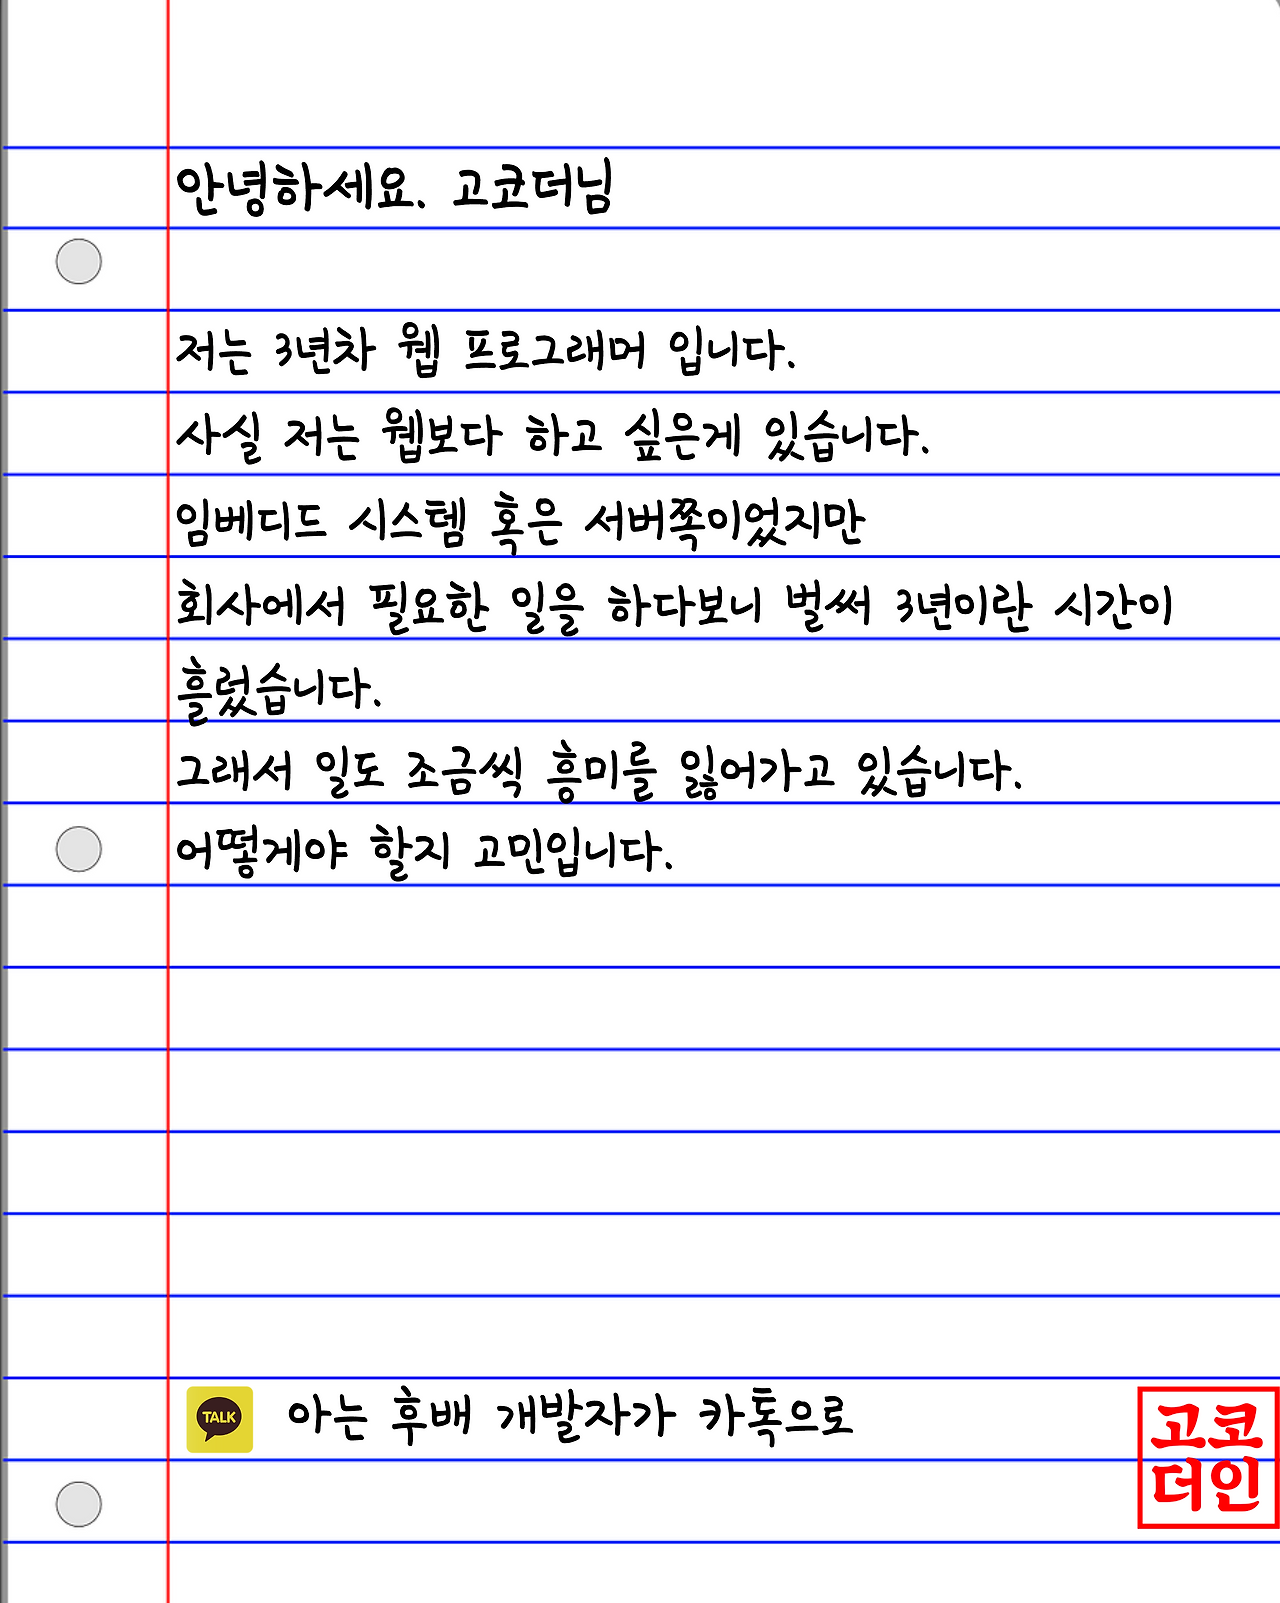 안녕하세요. 고코더님
저는 3년차 웹 프로그래머 입니다.
사실 저는 웹보다 하고 싶은게 있습니다.
임베디드 시스템 혹은 서버쪽이었지만
회사에서 필요한 일을 하다보니 벌써 3년이란 시간이
흘렀습니다.
그래서 일도 조금씩 흥미를 잃어가고 있습니다.
어떻게야 할지 고민입니다.
TALK 아는 후배 개발자가 카톡으로
고코
더인